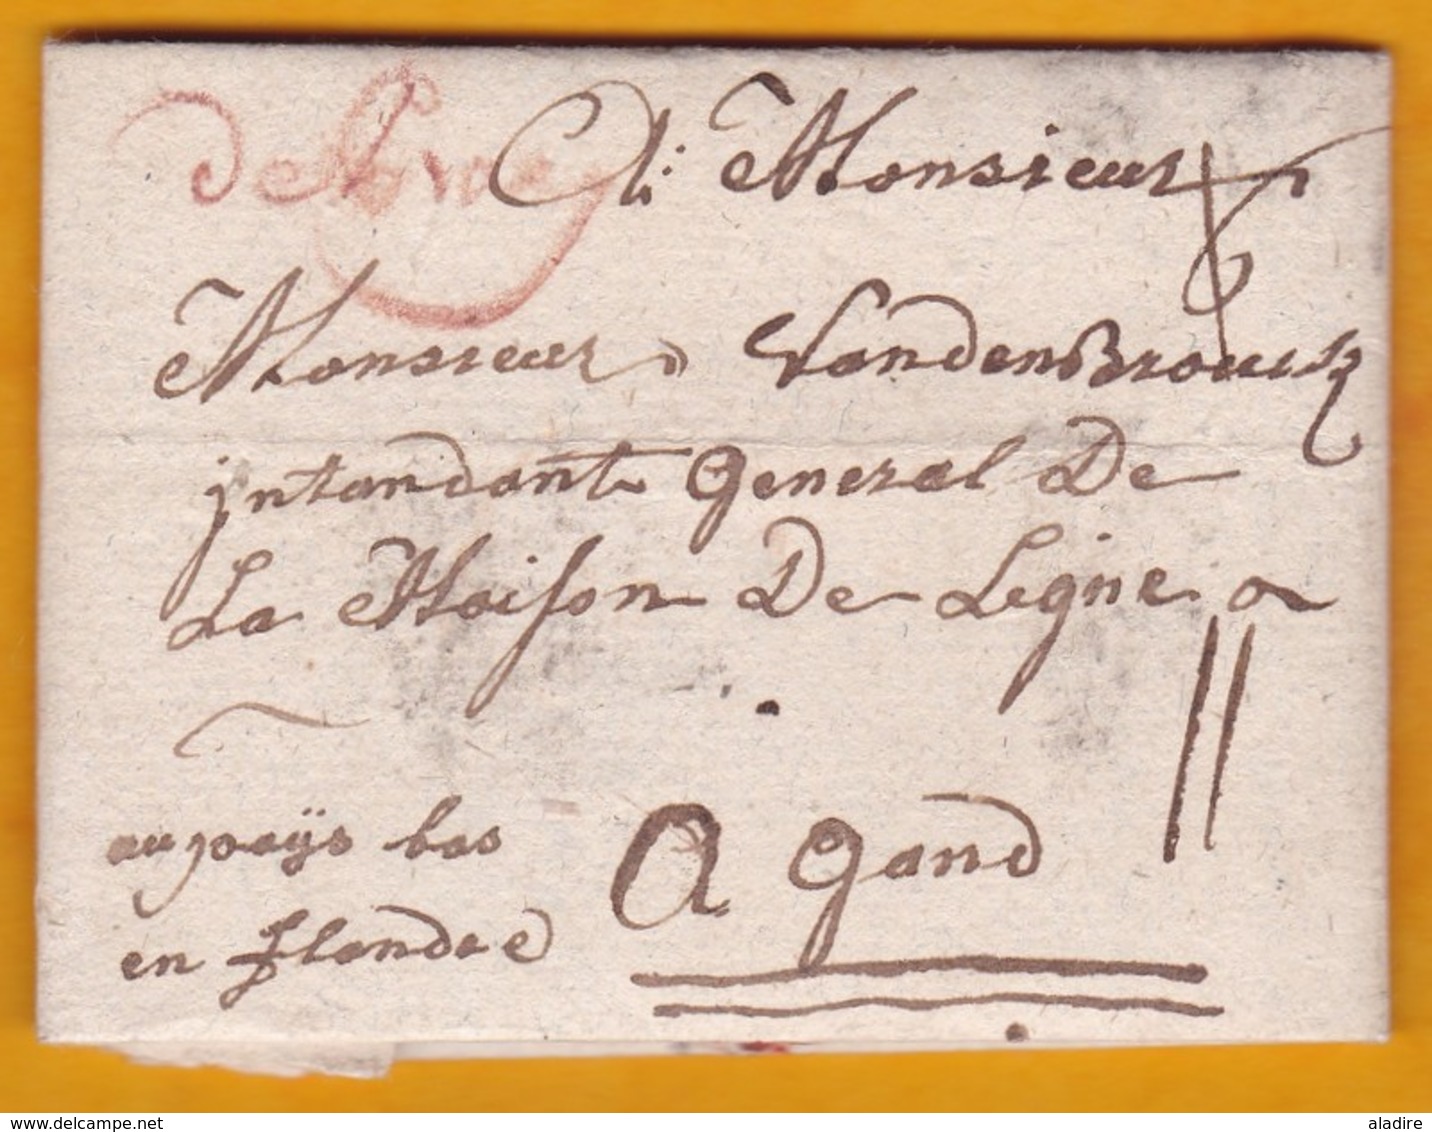 A Monsieur
Monsieur VandenBrouck
jntandant General De
La Maison De Legne
au païjs bas
en flandre
A gand
delcampe.net
aladire